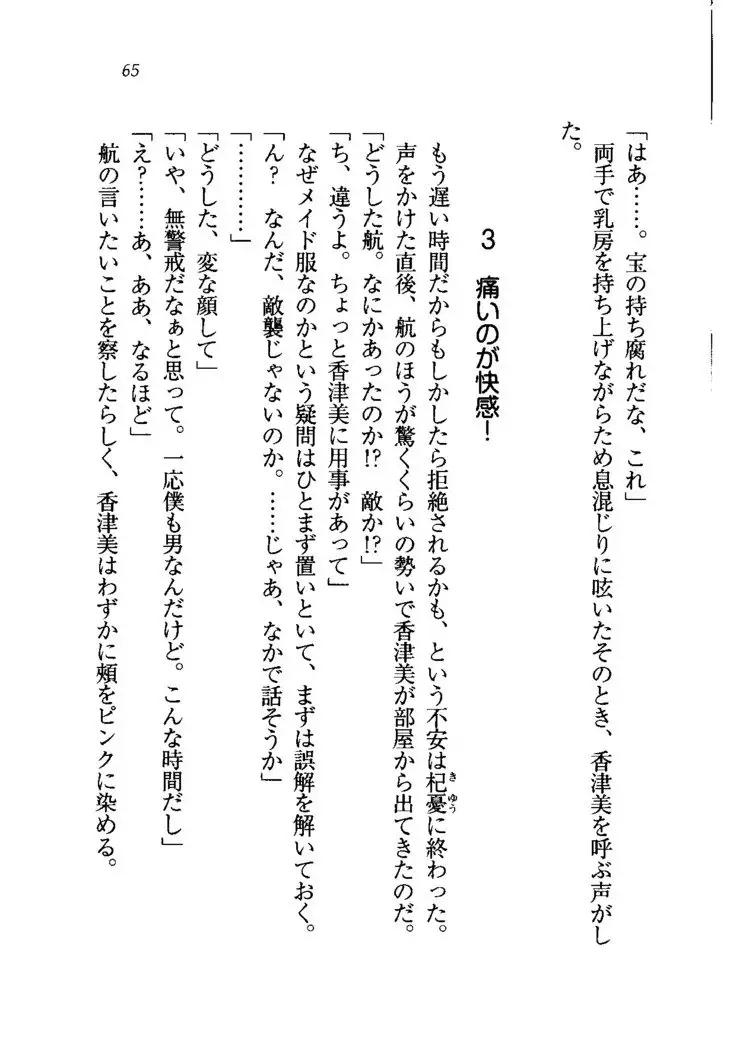 65
「はあ……。宝の持ち腐れだな、これ」
両手で乳房を持ち上げながらため息混じりに呟いたそのとき、香津美を呼ぶ声がし
た。
3　痛いのが快感！
もう遅い時間だからもしかしたら拒絶されるかも、という不安は杞憂に終わった。
きゆう
声をかけた直後、航のほうが驚くくらいの勢いで香津美が部屋から出てきたのだ。
「どうした航。なにかあったのか!?　敵か!?」
「ち、違うよ。ちょっと香津美に用事があって」
なぜメイド服なのかという疑問はひとまず置いといて、まずは誤解を解いておく。
「ん？　なんだ、敵襲じゃないのか。……じゃあ、なかで話そうか」
「…………」
「どうした、変な顔して」
「いや、無警戒だなぁと思って。一応僕も男なんだけど。こんな時間だし」
「え？……あ、ああ、なるほど」
航の言いたいことを察したらしく、香津美はわずかに頰をピンクに染める。